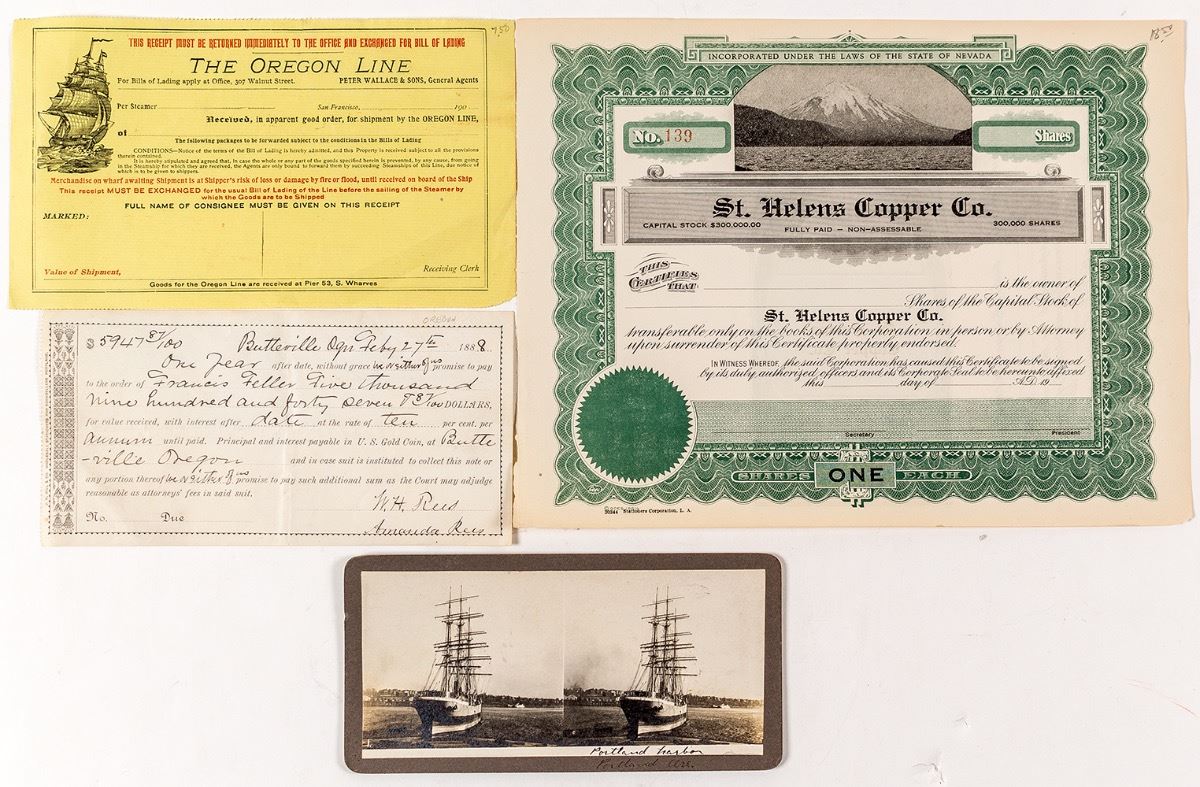 7.50
THIS RECEIPT MUST BE RETURNED IMMEDIATELY TO THE OFFICE AND EXCHANGED FOR BILL OF LADING
THE OREGON LINE
For Bills of Lading apply at Office, 307 Walnut Street. PETER WALLACE & SONS, General Agents
Per Steamer San Francisco, 190
Received, in apparent good order, for shipment by the OREGON LINE,
of
The following packages to be forwarded subject to the conditions in the Bills of Lading
CONDITIONS—Notice of the terms of the Bill of Lading is hereby admitted, and this Property is received subject to all the provisions
therein contained.
It is hereby stipulated and agreed that, in case the whole or any part of the goods specified herein is prevented, by any cause, from going
in the Steamship for which they are received, the Agents are only bound to forward them by succeeding Steamships of this Line, due notice of
which is to be given to shippers.
Merchandise on wharf awaiting Shipment is at Shipper's risk of loss or damage by fire or flood, until received on board of the Ship
This receipt MUST BE EXCHANGED for the usual Bill of Lading of the Line before the sailing of the Steamer by
which the Goods are to be Shipped
FULL NAME OF CONSIGNEE MUST BE GIVEN ON THIS RECEIPT
MARKED:
Value of Shipment, Receiving Clerk
Goods for the Oregon Line are received at Pier 53, S. Wharves
OREGON
$5947 87/100 Butteville Ogn Feby 27th 1888.
One year after date, without grace we or either of us promise to pay
to the order of Francis Feller Five thousand
nine hundred and forty seven & 87/100 DOLLARS,
for value received, with interest after date at the rate of ten per cent. per
annum until paid. Principal and interest payable in U. S. Gold Coin, at Butte
-ville Oregon and in case suit is instituted to collect this note or
any portion thereof we or either of us promise to pay such additional sum as the Court may adjudge
reasonable as attorneys' fees in said suit.
W. H. Rees
No. Due Amanda Rees
18.00
INCORPORATED UNDER THE LAWS OF THE STATE OF NEVADA
No. 139 Shares
St. Helens Copper Co.
CAPITAL STOCK $300,000.00 FULLY PAID — NON-ASSESSABLE 300,000 SHARES
THIS CERTIFIES THAT is the owner of
Shares of the Capital Stock of
St. Helens Copper Co.
transferable only on the books of this Corporation in person or by Attorney
upon surrender of this Certificate properly endorsed.
IN WITNESS WHEREOF, the said Corporation has caused this Certificate to be signed
by its duly authorized officers and its Corporate Seal to be hereunto affixed
this day of A.D. 19
Secretary President
SHARES ONE EACH
Stationers Corporation, L. A.
Portland harbor
Portland Ore.